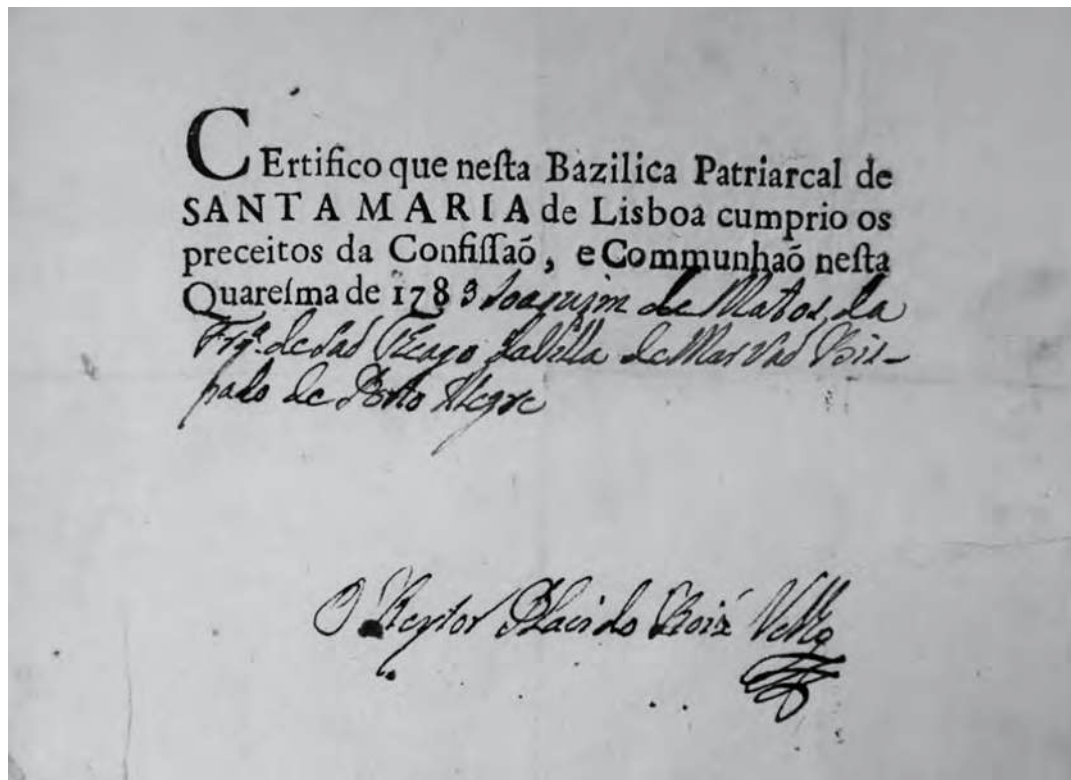 CErtifico que neſta Bazilica Patriarcal de
SANTA MARIA de Lisboa cumprio os
preceitos da Confiſſaõ, e Communhaõ neſta
Quareſma de 1783 Joaquim de Matos, da
Frg.ª de Saõ Tiago da Villa de Marvaõ Bis-
pado de Porto Alegre
O Reytor Placido Roiz Velho